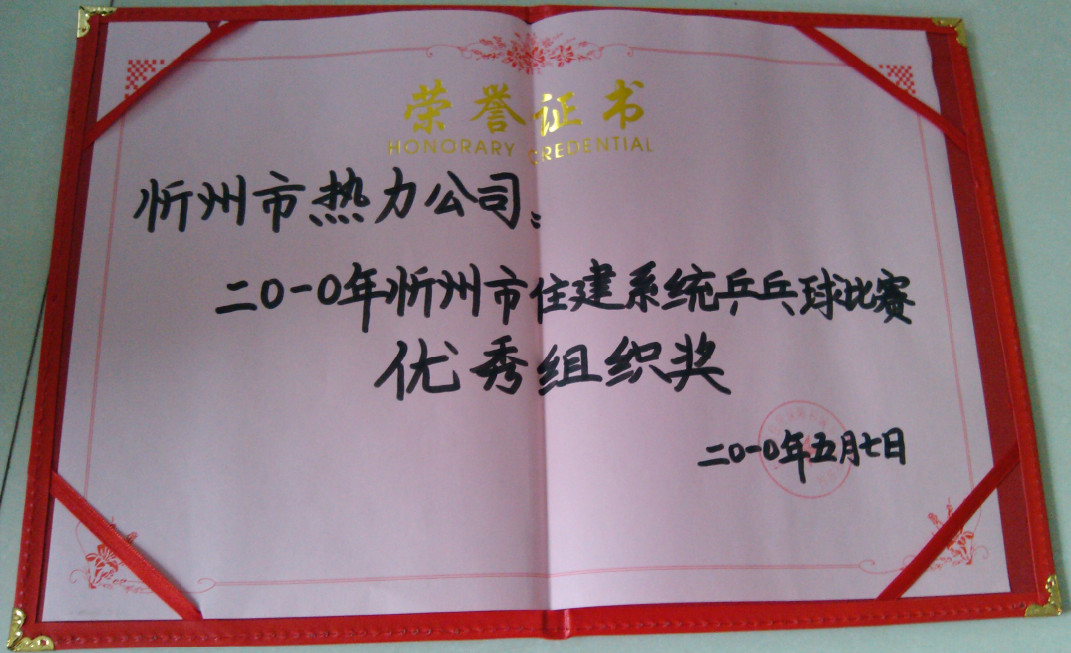 荣誉证书
HONORARY CREDENTIAL
忻州市热力公司：
二0一0年忻州市住建系统乒乓球比赛
优秀组织奖
二0一0年五月七日